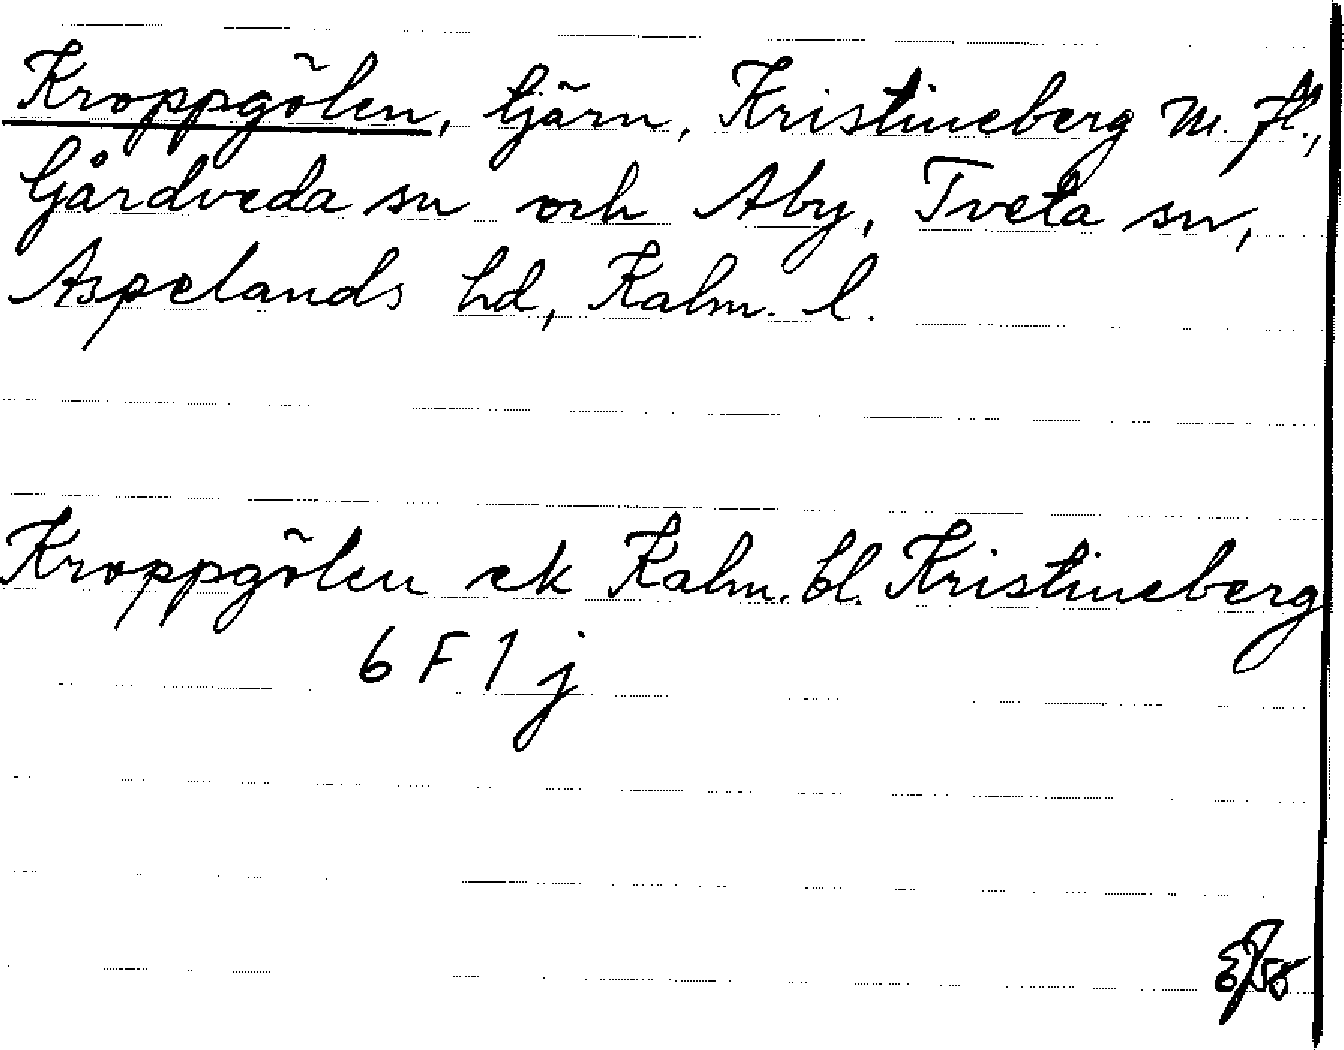 Kroppgölen, tjärn, Kristineberg m. fl.,
Gårdveda sn och Aby, Tveta sn,
Aspelands hd, Kalm. l.
Kroppgölen ek Kalm. bl. Kristineberg
6 F 1 j